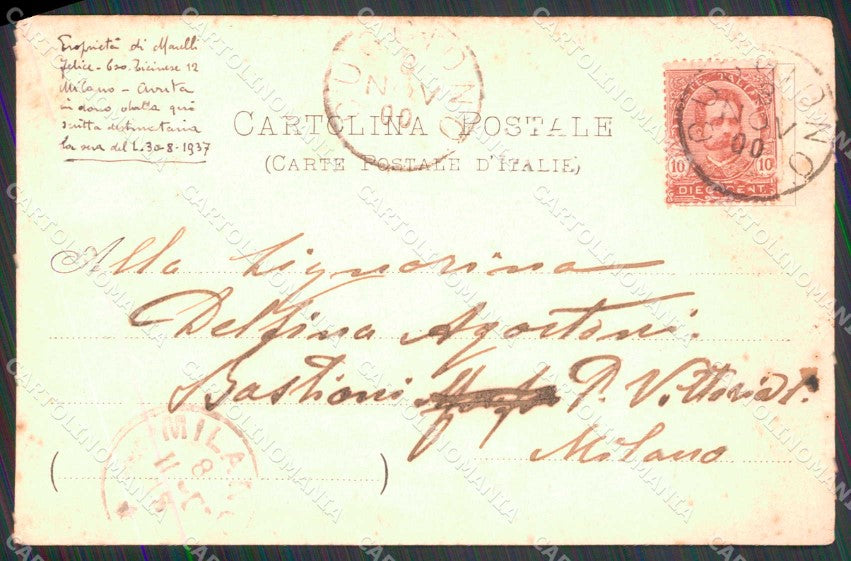 Proprietà di Maelli
Felice - C.so Ticinese 12
Milano - avuta
in dono dalla qui
scritta destinataria
la sera del L. 30-8-1937
CARTOLINA POSTALE
(CARTE POSTALE D'ITALIE)
NOV
00
10 10
DIECI CENT.
NOV
00
Alla Signorina
Delfina Agostoni.
Bastioni P. Vittoria 1.
Milano
( )
MILANO
8
11
CARTOLINOMANIA